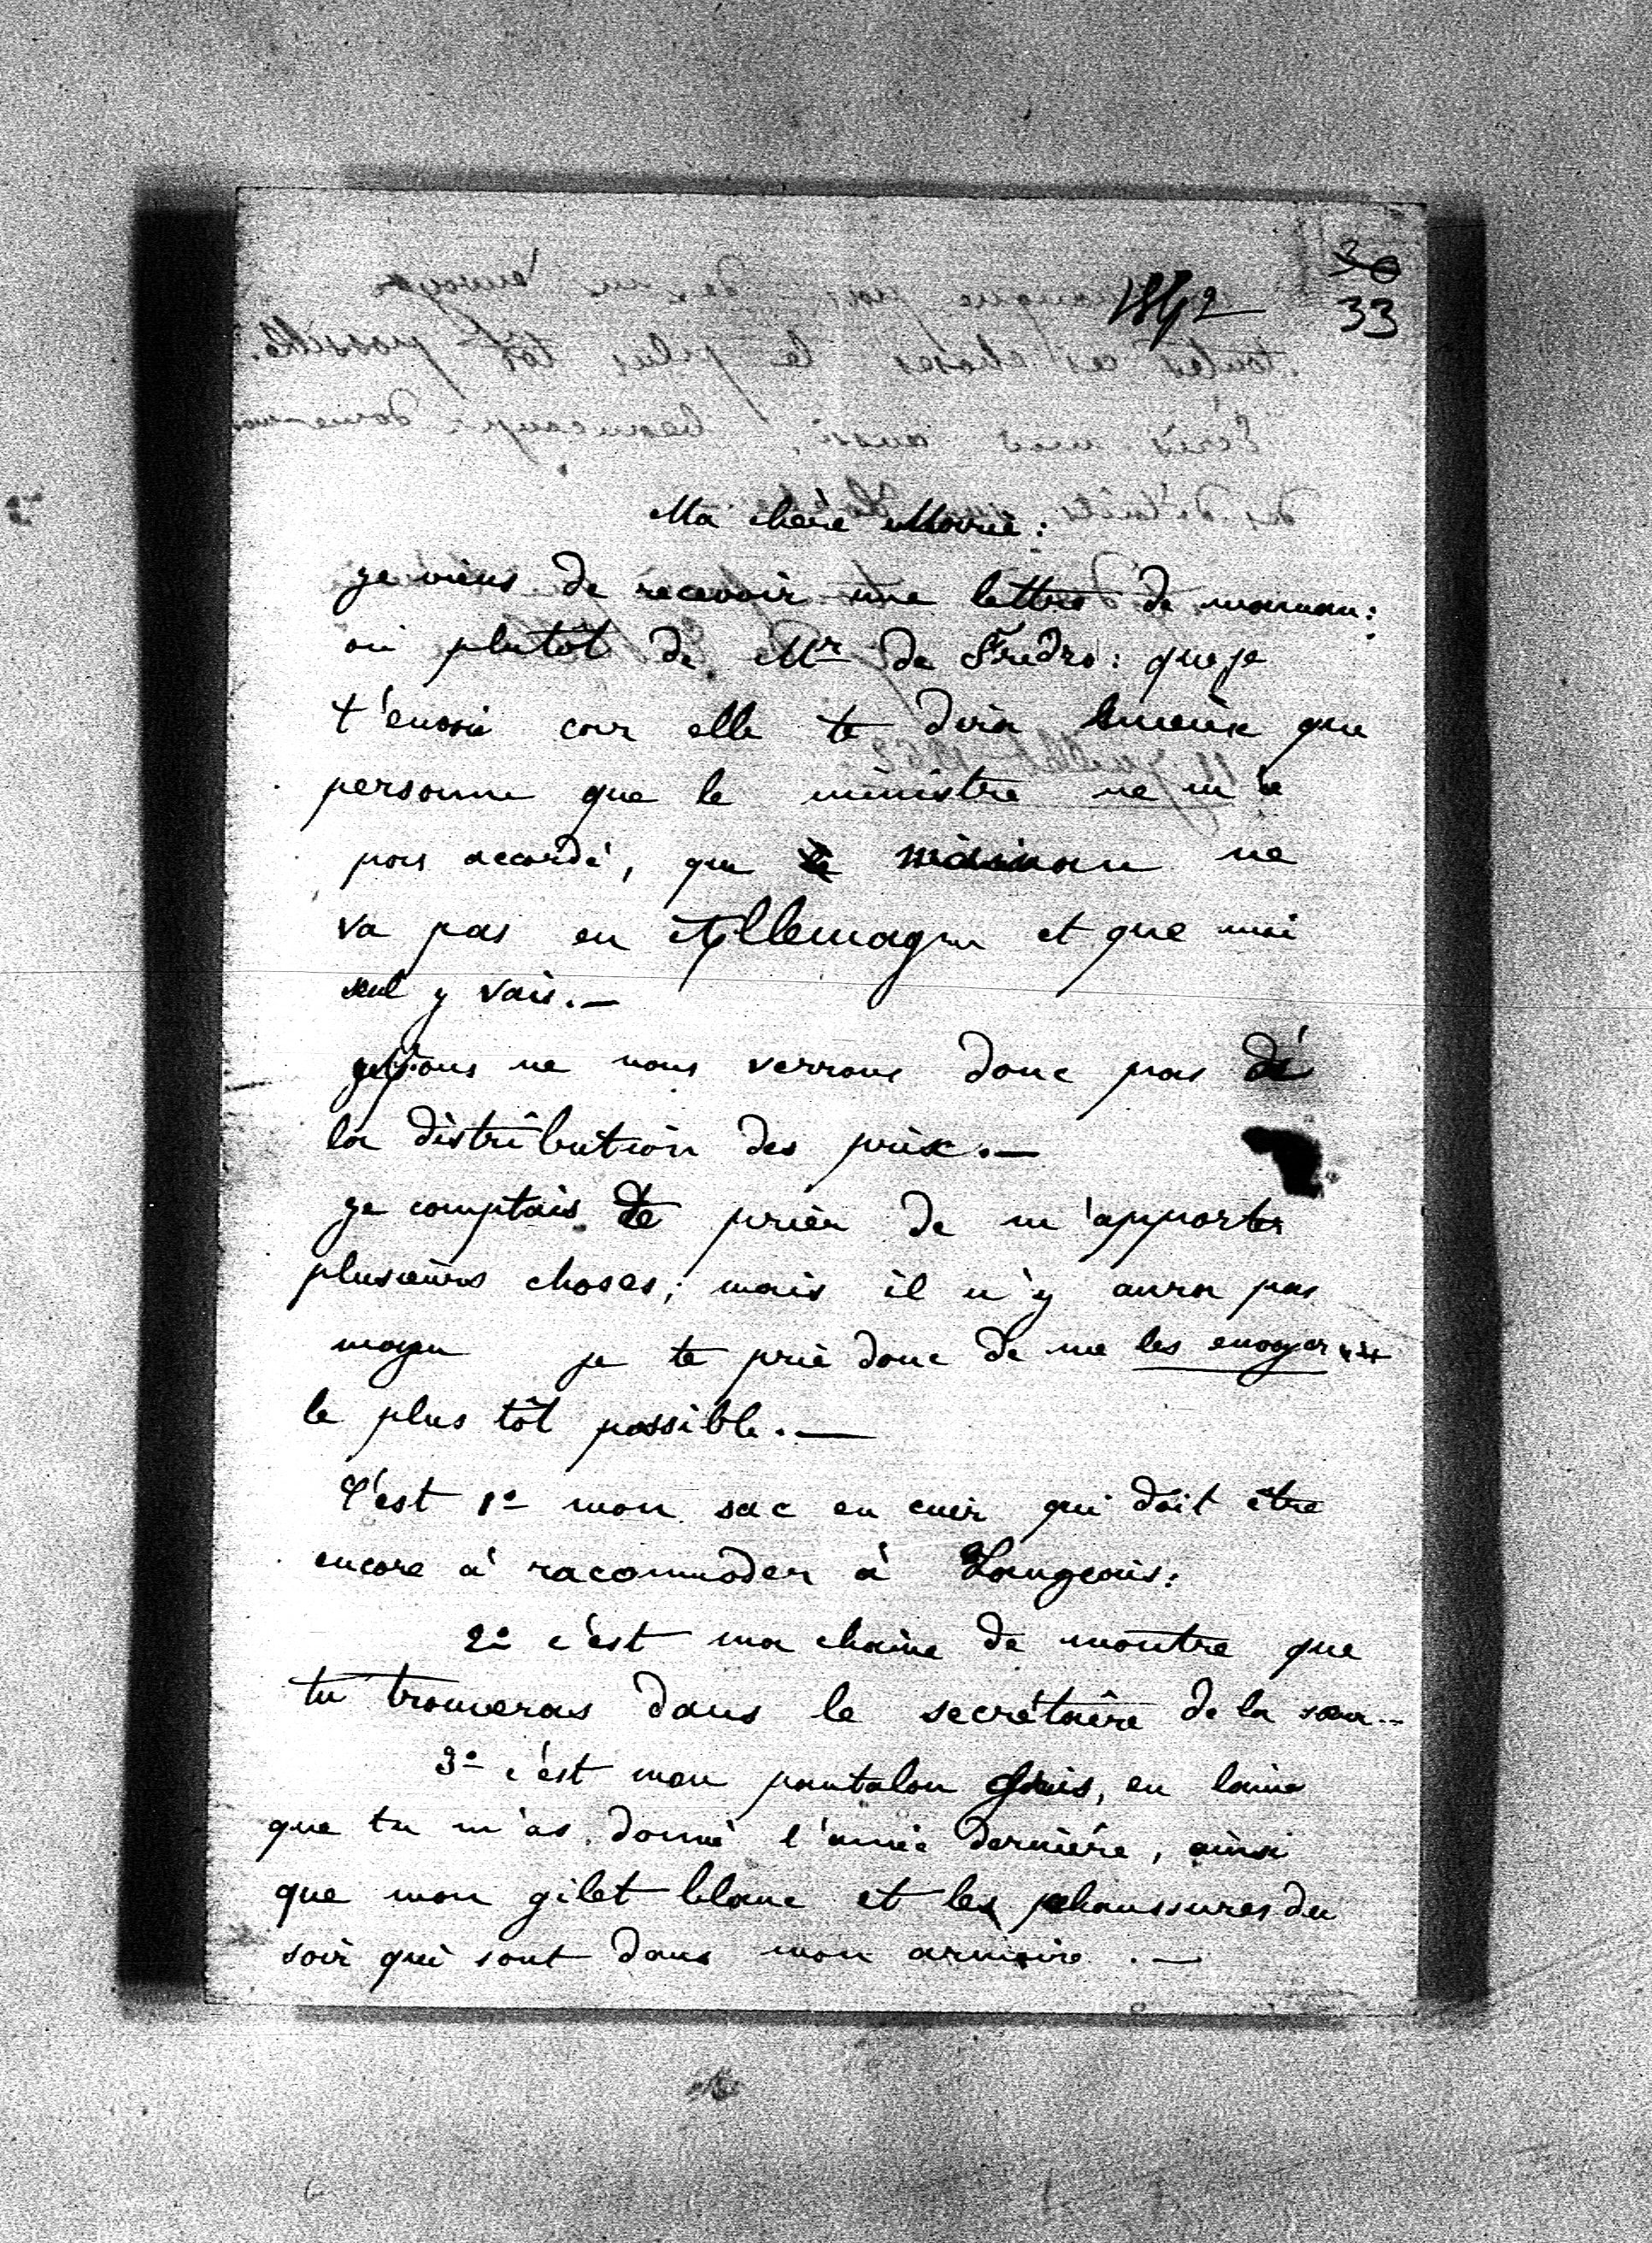 30
33
1862
Ma chère Marie:
je viens de recevoir une lettre de maman:
ou plutôt de Mr de Fredro: que je
t'envoie car elle te dira mieux que
personne que le ministre ne m'a
pas accordé, que maman ne
va pas en Allemagne et que moi
seul y vais.—
nous ne nous verrons donc pas dé
la distribution des prix.—
je comptais te prier de m'apporter
plusieurs choses; mais il n'y aura pas
moyen je te prie donc de me les envoyer
le plus tôt possible.—
C'est 1º mon sac en cuir qui doit être
encore à racommoder à Langeais:
2º c'est ma chaîne de montre que
tu trouveras dans le secrétaire de la sœur..
3º c'est mon pantalon gris, en laine
que tu m'as donné l'année dernière, ainsi
que mon gilet blanc et les chaussures du
soir qui sont dans mon armoire.—